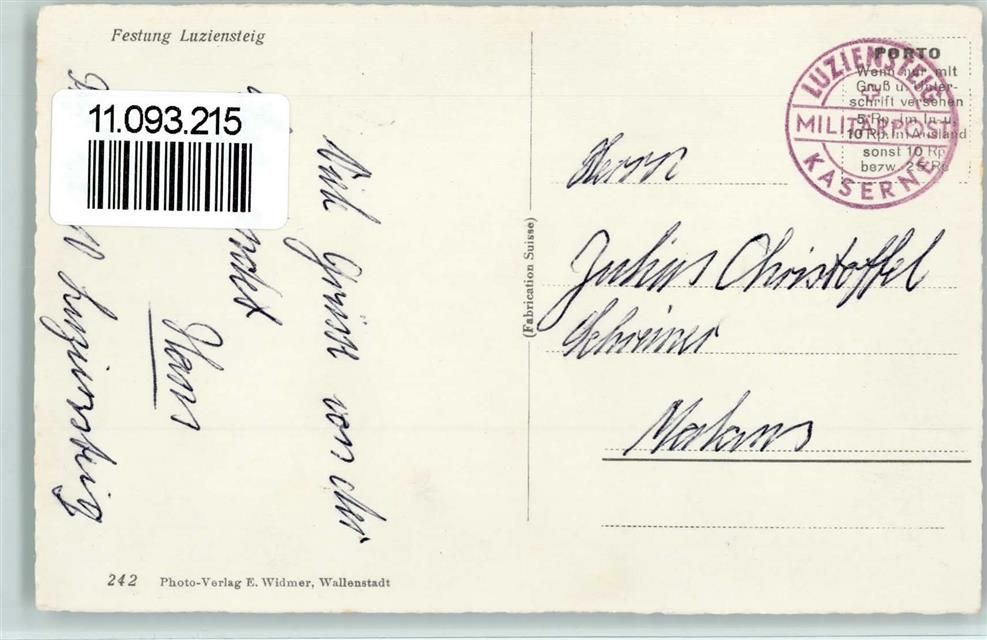 Festung Luziensteig
11.093.215
Viele Grüsse von der
Luziensteig
Hans
(Fabrication Suisse)
LUZIENSTEIG
MILITÄRPOST
KASERNE
PORTO
Wenn nur mit
Gruß u. Unter-
schrift versehen
5 Rp. im In- u.
10 Rp. im Ausland
sonst 10 Rp.
bezw. 25 Rp.
Herrn
Julius Christoffel
Schreiner
Malans
242 Photo-Verlag E. Widmer, Wallenstadt